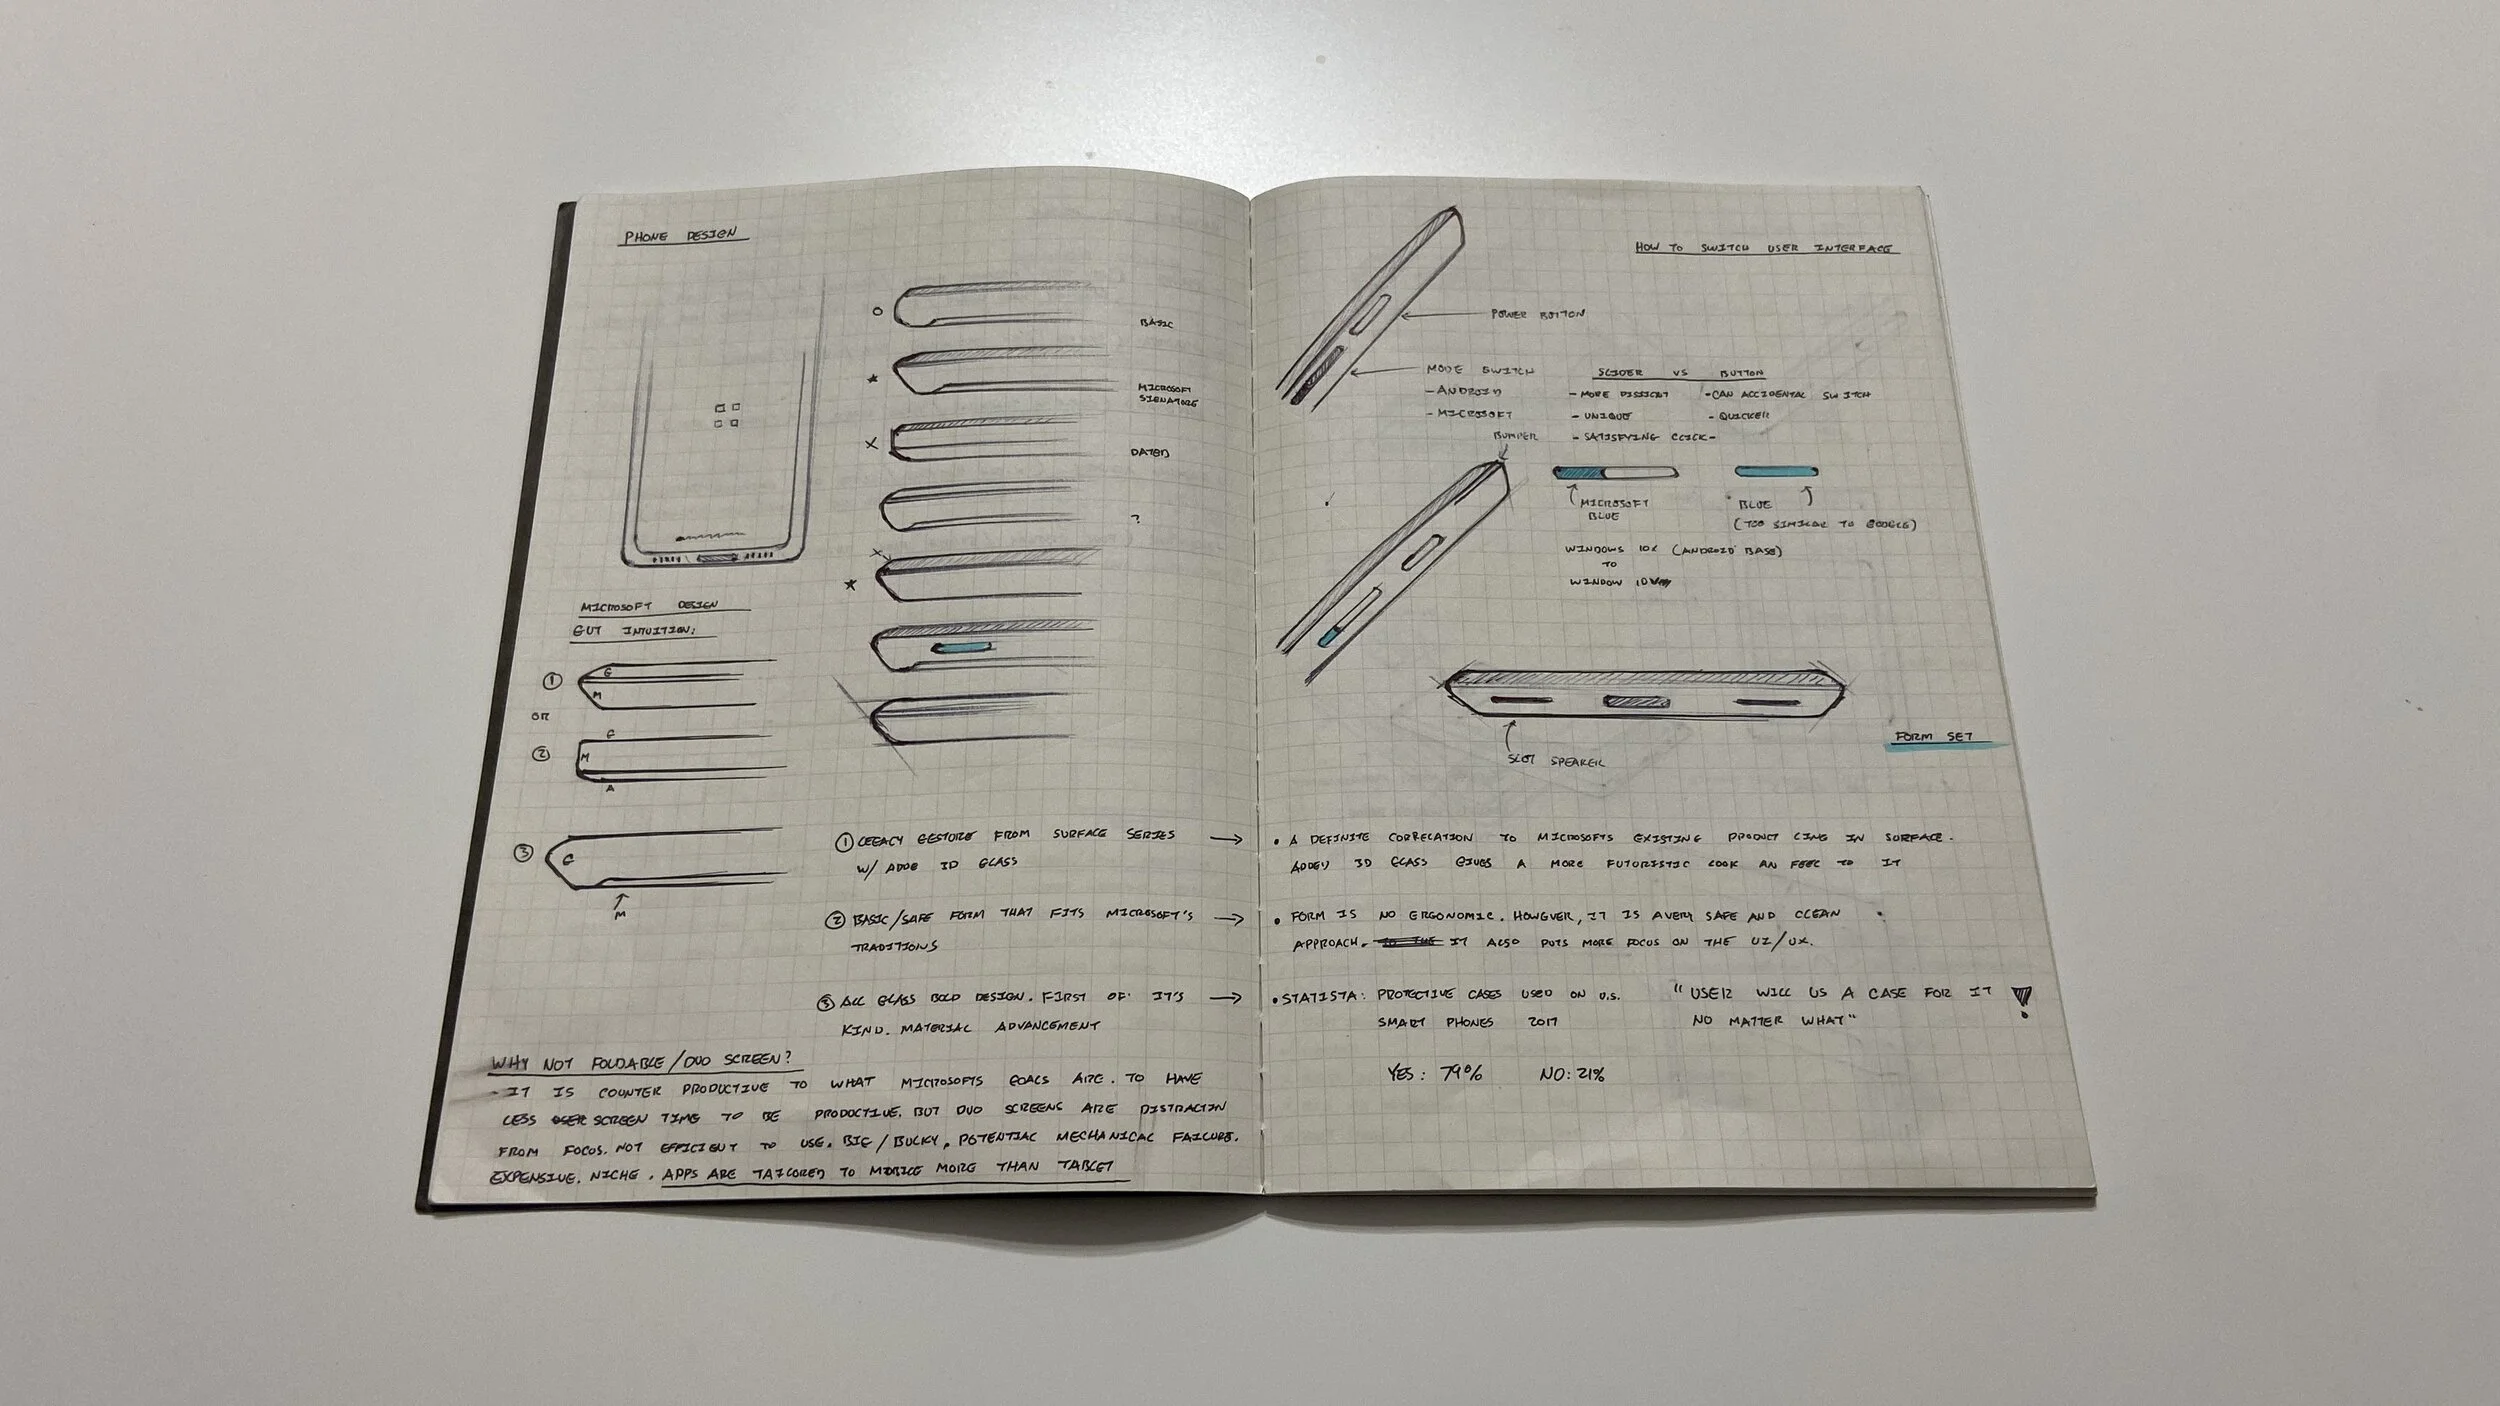 PHONE DESIGN
BASIC
MICROSOFT
SIGNATURE
DATED
?
MICROSOFT DESIGN
GUT INTUITION:
1
G
M
OR
2
G
M
A
3
G
M
1 LEGACY GESTURE FROM SURFACE SERIES
W/ ADDE 3D GLASS
2 BASIC/SAFE FORM THAT FITS MICROSOFT'S
TRADITIONS
3 ALL GLASS BOLD DESIGN. FIRST OF IT'S
KIND. MATERIAL ADVANCEMENT
WHY NOT FOLDABLE/DUO SCREEN?
- IT IS COUNTER PRODUCTIVE TO WHAT MICROSOFTS GOALS ARE. TO HAVE
LESS SCREEN TIME TO BE PRODUCTIVE. BUT DUO SCREENS ARE DISTRACTIN
FROM FOCUS. NOT EFFICIENT TO USE. BIG/BULKY, POTENTIAL MECHANICAL FAILURE.
EXPENSIVE. NICHE. APPS ARE TAILORED TO MOBILE MORE THAN TABLET
HOW TO SWITCH USER INTERFACE
POWER BUTTON
MODE SWITCH
- ANDROID
- MICROSOFT
SLIDER VS BUTTON
- MORE
- UNIQUE
- SATISFYING CLICK-
- CAN ACCIDENTAL SWITCH
- QUICKER
BUMPER
MICROSOFT
BLUE
BLUE
(TOO SIMILAR TO GOOGLE)
WINDOWS 10X (ANDROID BASE)
TO
WINDOW
SLOT SPEAKER
FORM SET
• A DEFINITE CORRELATION TO MICROSOFTS EXISTING PRODUCT LING IN SURFACE.
ADDED 3D GLASS GIVES A MORE FUTURISTIC LOOK AN FEEL TO IT
• FORM IS NO ERGONOMIC. HOWEVER, IT IS A VERY SAFE AND CLEAN
APPROACH. IT ALSO PUTS MORE FOCUS ON THE UI/UX.
• STATISTA: PROTECTIVE CASES USED ON U.S.
SMART PHONES 2017
YES: 79% NO: 21%
"USER WILL US A CASE FOR IT
NO MATTER WHAT"!